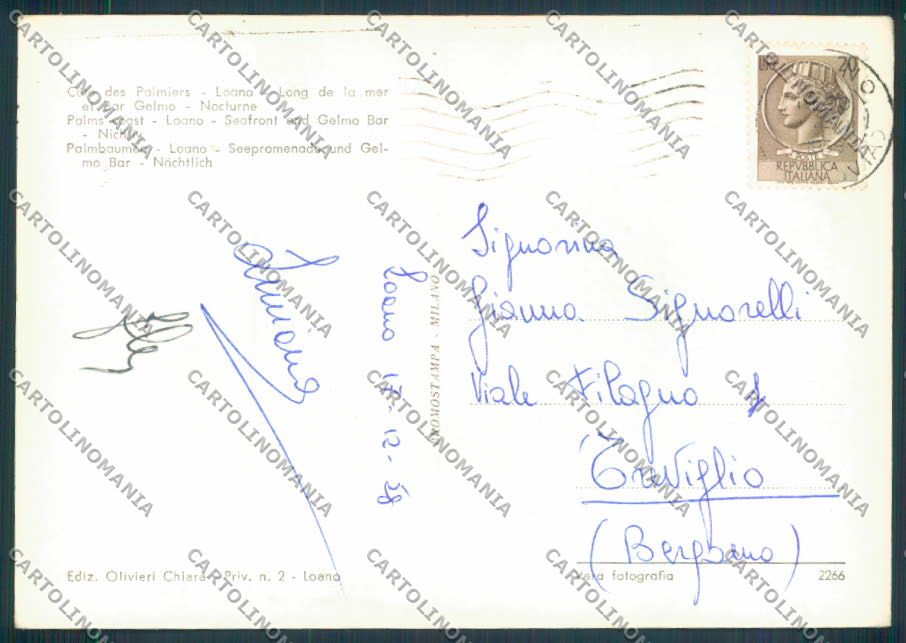 Côte des Palmiers - Loano - Long de la mer
et Bar Gelmo - Nocturne
Palms coast - Loano - Seafront and Gelmo Bar
- Nicht
Palmbaumen - Loano - Seepromenade und Gel-
mo Bar - Nächtlich
LIRE 20
POSTE
REPVBBLICA
ITALIANA
Loano 17-12-58
CROMOSTAMPA - MILANO
Signorina
Gianna Signorelli
Viale Filagno 1
Treviglio
(Bergamo)
Ediz. Olivieri Chiara - Priv. n. 2 - Loano
Vera fotografia
2266
CARTOLINOMANIA